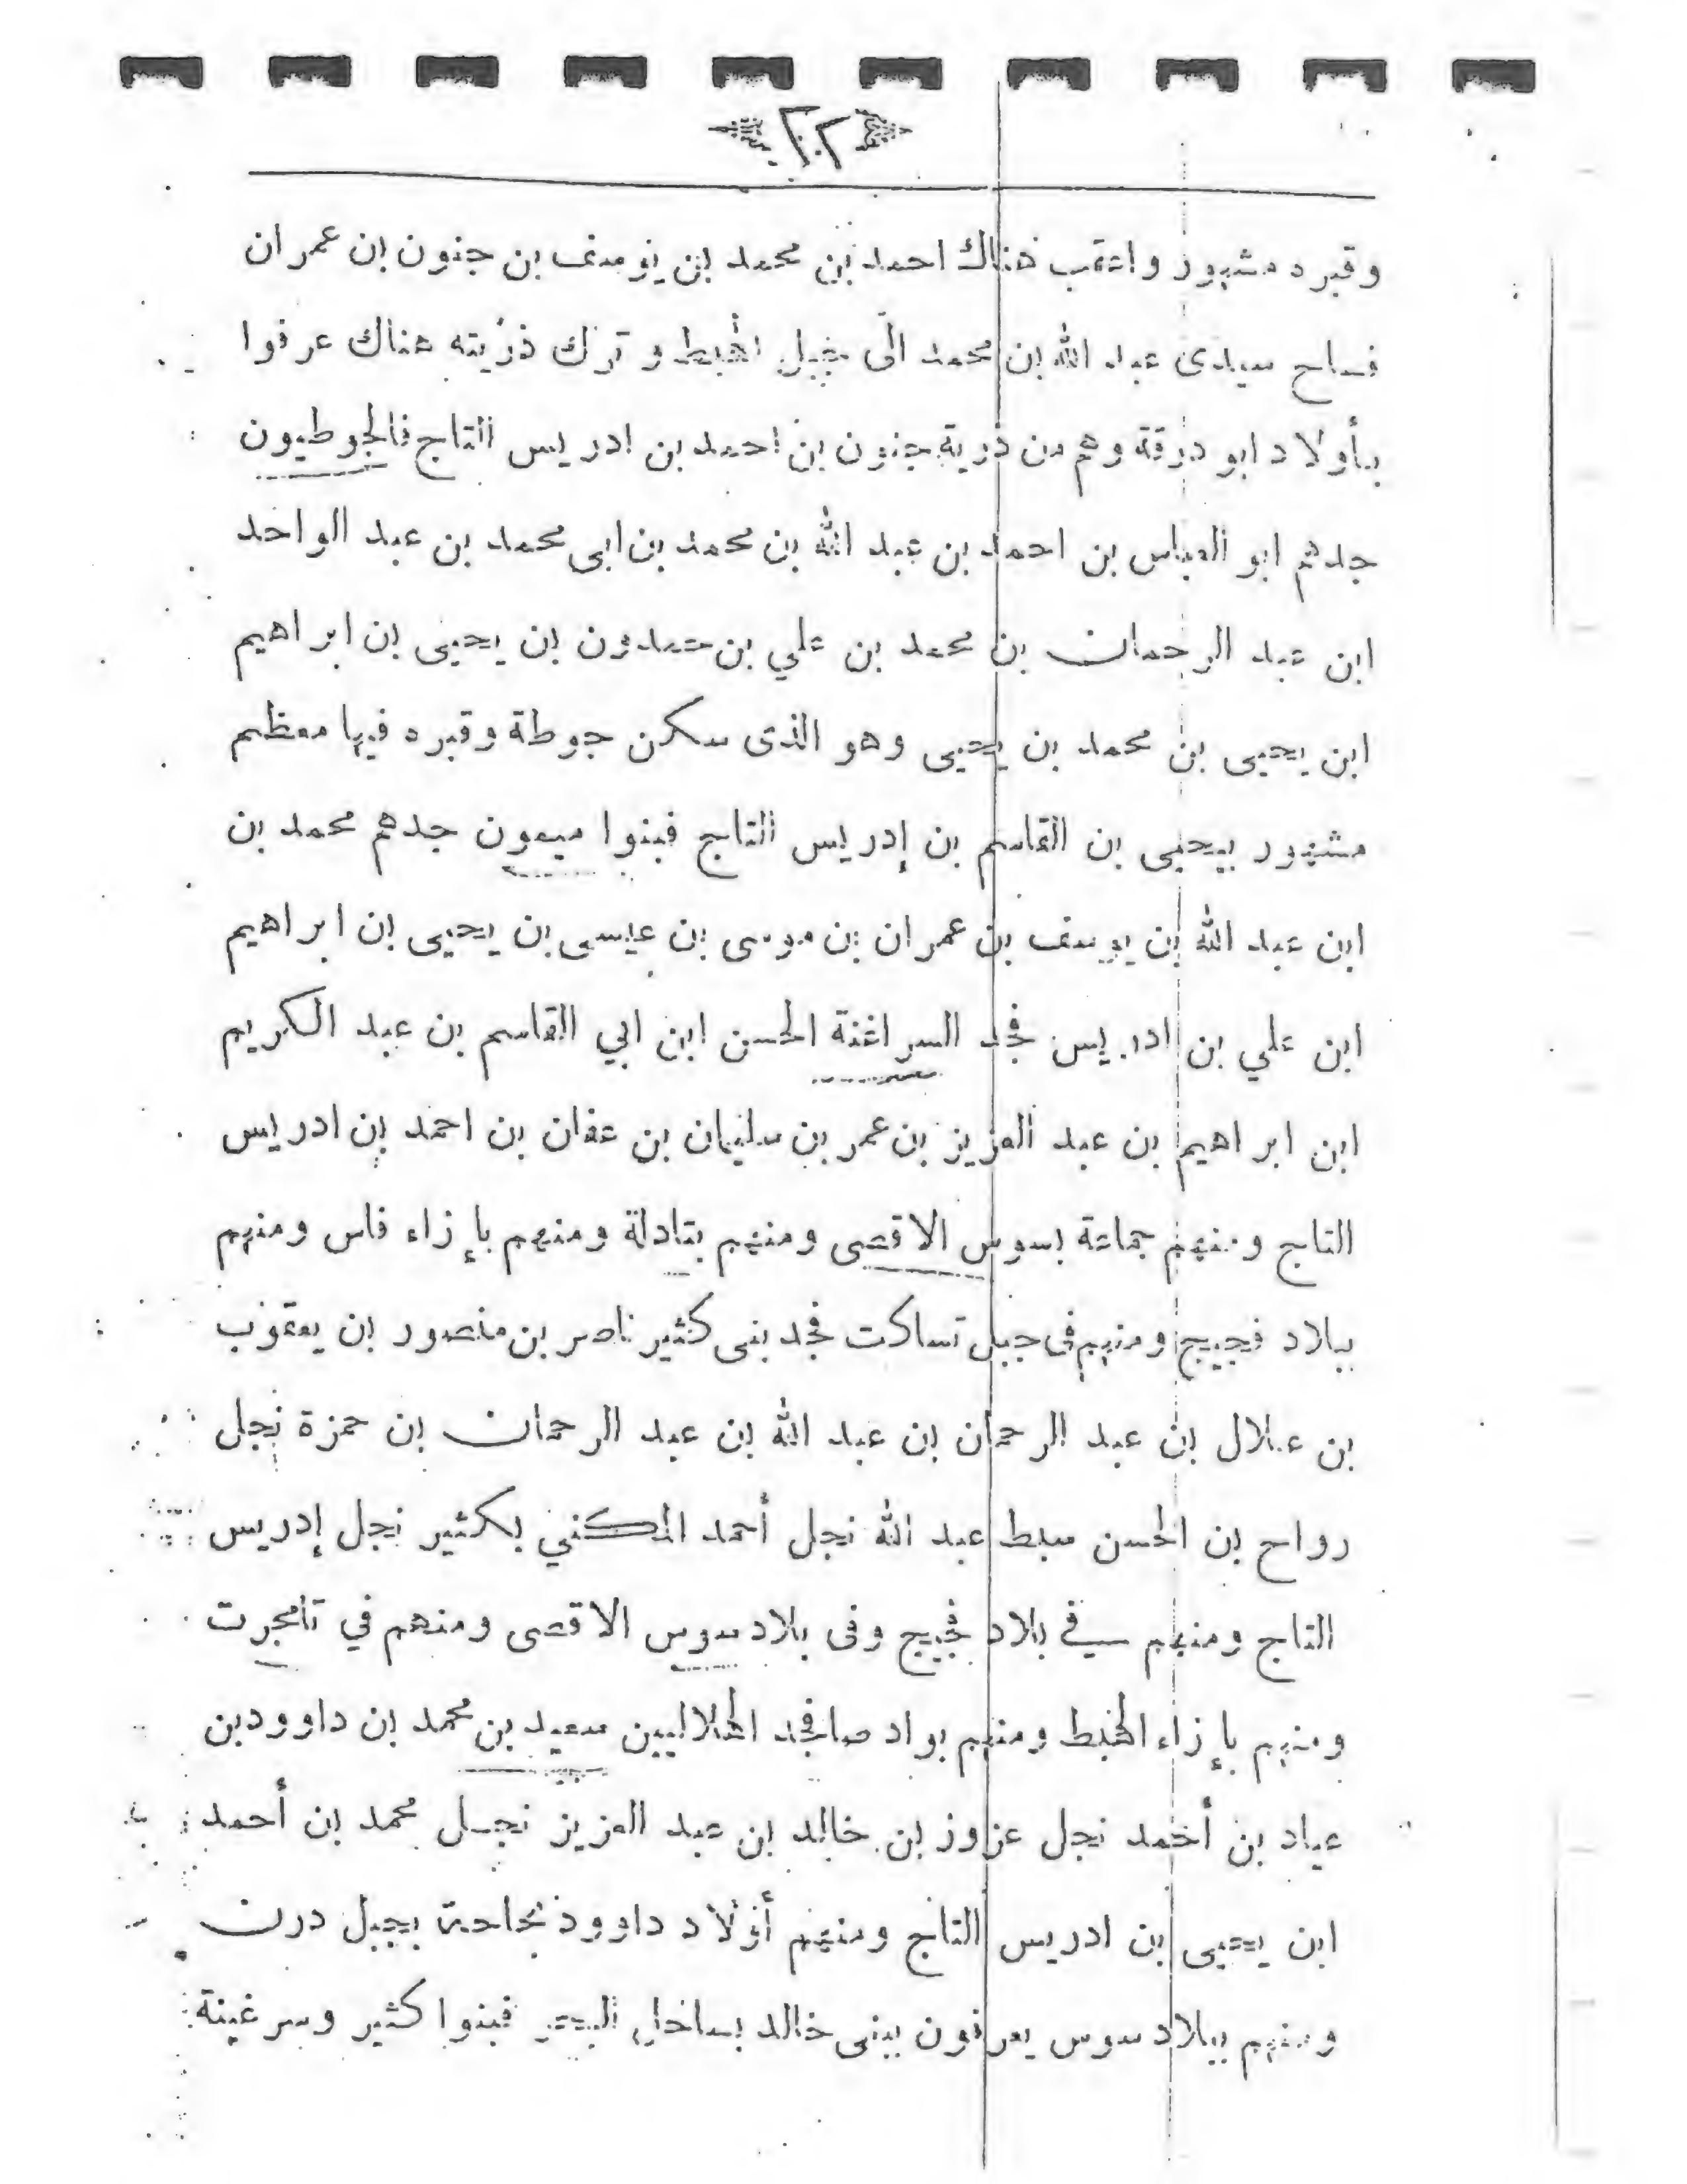 ٢٠٢
وقبره مشهور واعقب هناك احمد بن محمد بن يوسف بن جنون بن عمران
فساح سيدى عبد الله بن محمد الى جبل الهبط و ترك ذريته هناك عرفوا
بأولاد ابو درقة وهم من ذرية جنون بن احمد بن ادريس التاج فالجوطيون
جدهم ابو العباس بن احمد بن عبد الله بن محمد بن ابى محمد بن عبد الواحد
ابن عبد الرحمان بن محمد بن علي بن حمدون بن يحيى بن ابراهيم
ابن يحيى بن محمد بن يحيى وهو الذى سكن جوطة وقبره فيها معظم
مشهور بيحيى بن القاسم بن إدريس التاج فبنوا ميمون جدهم محمد بن
ابن عبد الله بن يوسف بن عمران بن موسى بن عيسى بن يحيى بن ابراهيم
ابن علي بن ادريس فجد السراغنة الحسن ابن ابي القاسم بن عبد الكريم
ابن ابراهيم بن عبد العزيز بن عمر بن سليمان بن عفان بن احمد بن ادريس
التاج ومنهم جماعة بسوس الاقصى ومنهم بتادلة ومنهم بإزاء فاس ومنهم
ببلاد فجيج ومنهم فى جبل تساكت فجد بنى كثير ناصر بن منصور بن يعقوب
بن علال بن عبد الرحمان بن عبد الله بن عبد الرحمان بن حمزة نجل
رواح بن الحسن سبط عبد الله نجل أحمد المكني بكثير نجل إدريس
التاج ومنهم في بلاد فجيج وفى بلاد سوس الاقصى ومنهم في تامجرت
ومنهم بإزاء الهبط ومنهم بواد صا فجد الهلاليين سعيد بن محمد بن داوود بن
عياد بن أحمد نجل عزوز بن خالد بن عبد العزيز نجل محمد بن أحمد
ابن يحيى بن ادريس التاج ومنهم أولاد داوود بحاحة بجبل درن
ومنهم ببلاد سوس يعرفون ببنى خالد بساحل البحر فبنوا كثير وسرغينة